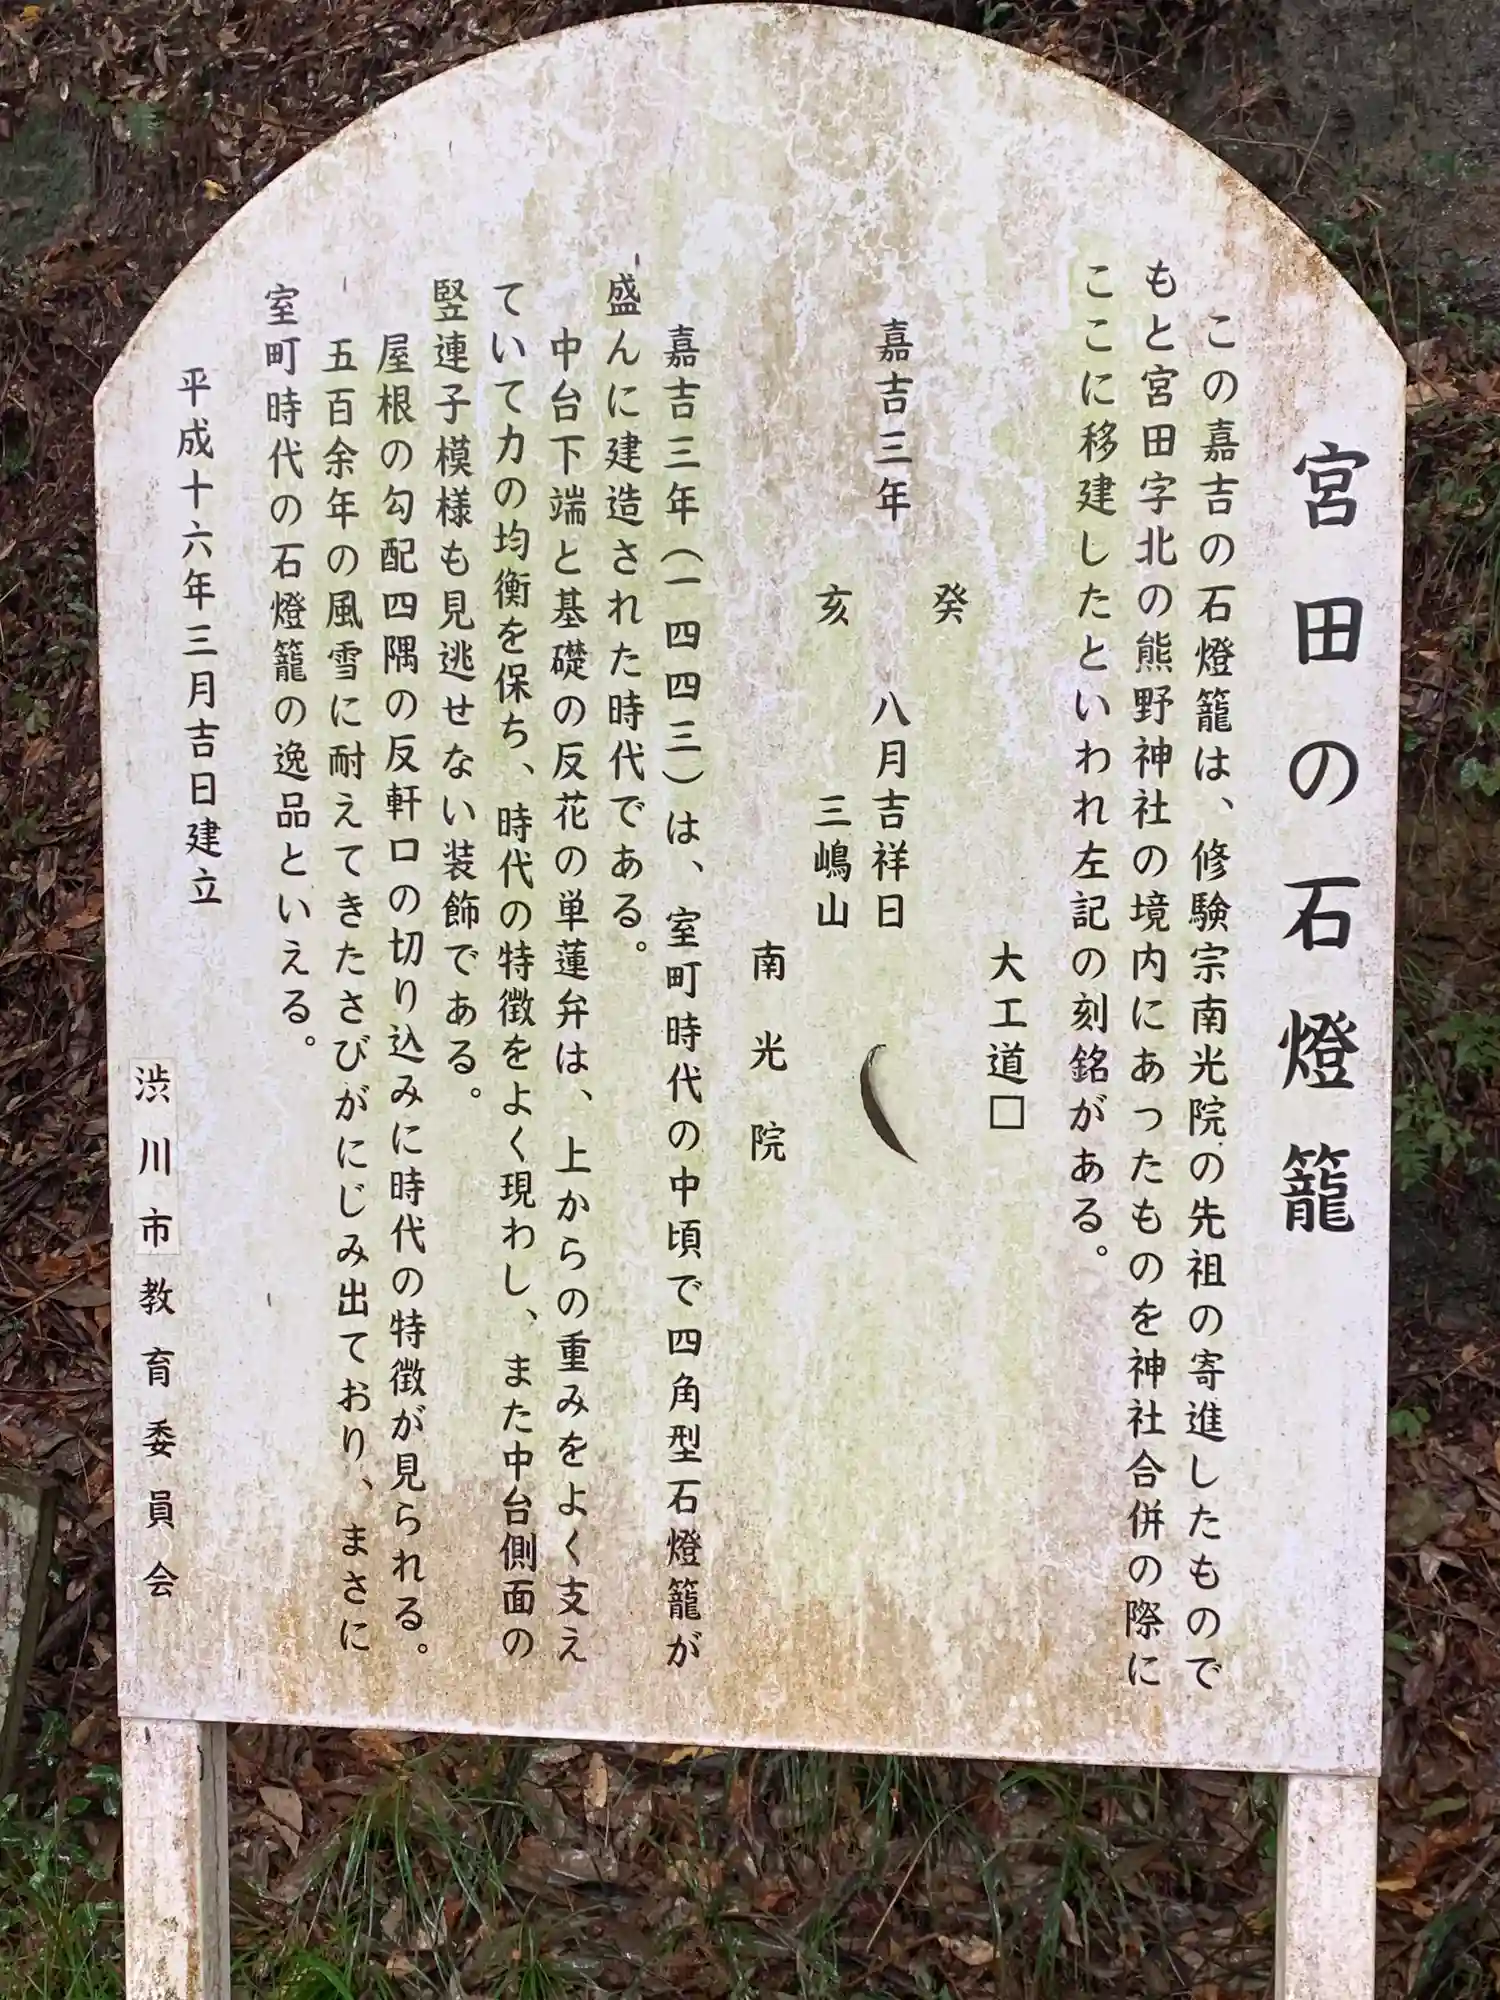 宮田の石燈籠
この嘉吉の石燈籠は、修験宗南光院の先祖の寄進したもので
もと宮田字北の熊野神社の境内にあったものを神社合併の際に
ここに移建したといわれ左記の刻銘がある。
大工道□
癸
嘉吉三年 八月吉祥日
亥 三嶋山
南光院
嘉吉三年(一四四三)は、室町時代の中頃で四角型石燈籠が
盛んに建造された時代である。
中台下端と基礎の反花の単蓮弁は、上からの重みをよく支え
ていて力の均衡を保ち、時代の特徴をよく現わし、また中台側面の
竪連子模様も見逃せない装飾である。
屋根の勾配四隅の反軒口の切り込みに時代の特徴が見られる。
五百余年の風雪に耐えてきたさびがにじみ出ており、まさに
室町時代の石燈籠の逸品といえる。
平成十六年三月吉日建立
渋川市教育委員会